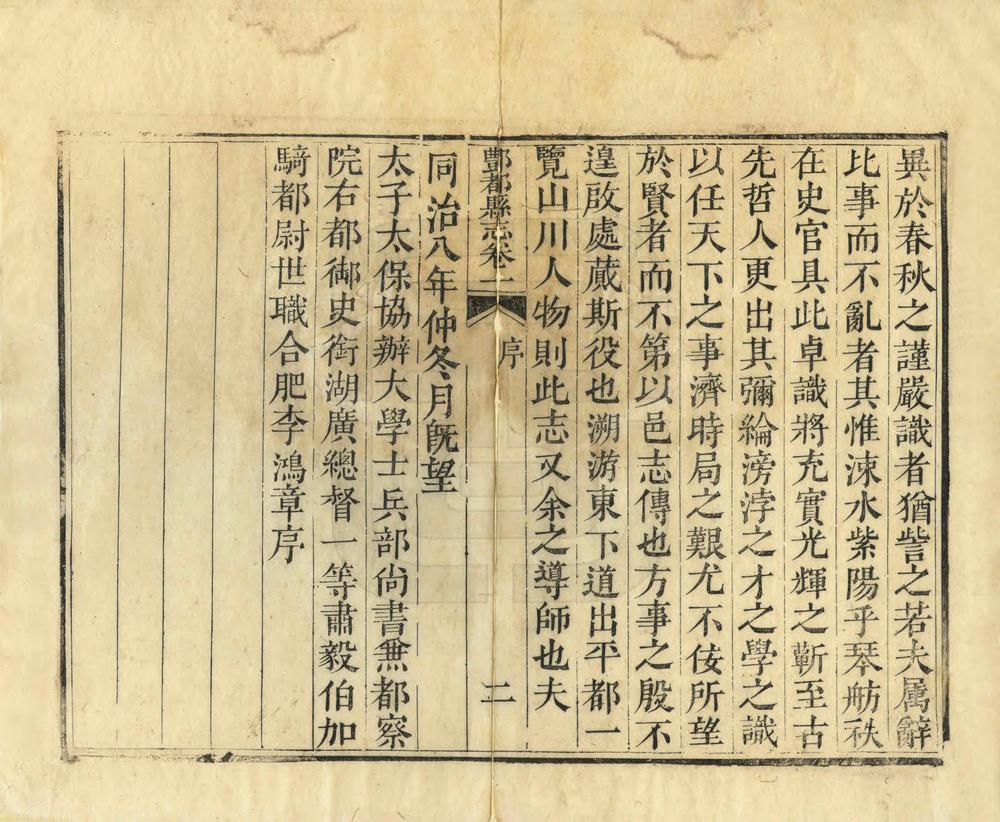 異於春秋之謹嚴識者猶訾之若夫属辭
比事而不亂者其惟涑水紫陽乎琴舫秩
在史官具此卓識將充實光輝之蘄至古
先哲人更出其彌綸滂浡之才之學之識
以任天下之事濟時局之艱尤不佞所望
於賢者而不第以邑志傳也方事之殷不
遑啟處蕆斯役也溯游東下道出平都一
覽山川人物則此志又余之導師也夫
酆都縣志卷一
序
二
同治八年仲冬月既望
太子太保協辦大學士兵部尚書兼都察
院右都御史銜湖廣總督一等肅毅伯加
騎都尉世職合肥李鴻章序